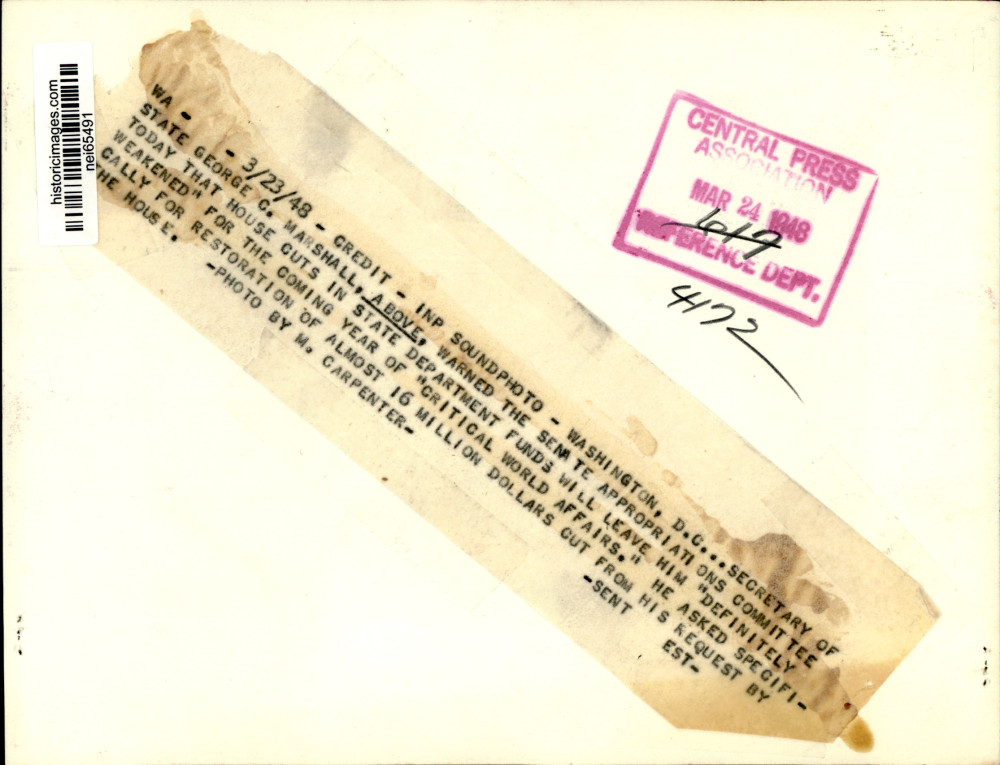 historicimages.com
nei65491
CENTRAL PRESS
ASSOCIATION
MAR 24 1948
1019
REFERENCE DEPT.
4172
WA -
- 3/23/48 - CREDIT - INP SOUNDPHOTO - WASHINGTON, D.C...SECRETARY OF
STATE GEORGE C. MARSHALL, ABOVE, WARNED THE SENATE APPROPRIATIONS COMMITTEE
TODAY THAT HOUSE CUTS IN STATE DEPARTMENT FUNDS WILL LEAVE HIM "DEFINITELY
WEAKENED" FOR THE COMING YEAR OF "CRITICAL WORLD AFFAIRS." HE ASKED SPECIFI-
CALLY FOR RESTORATION OF ALMOST 16 MILLION DOLLARS CUT FROM HIS REQUEST BY
THE HOUSE.
-PHOTO BY M. CARPENTER- -SENT EST-